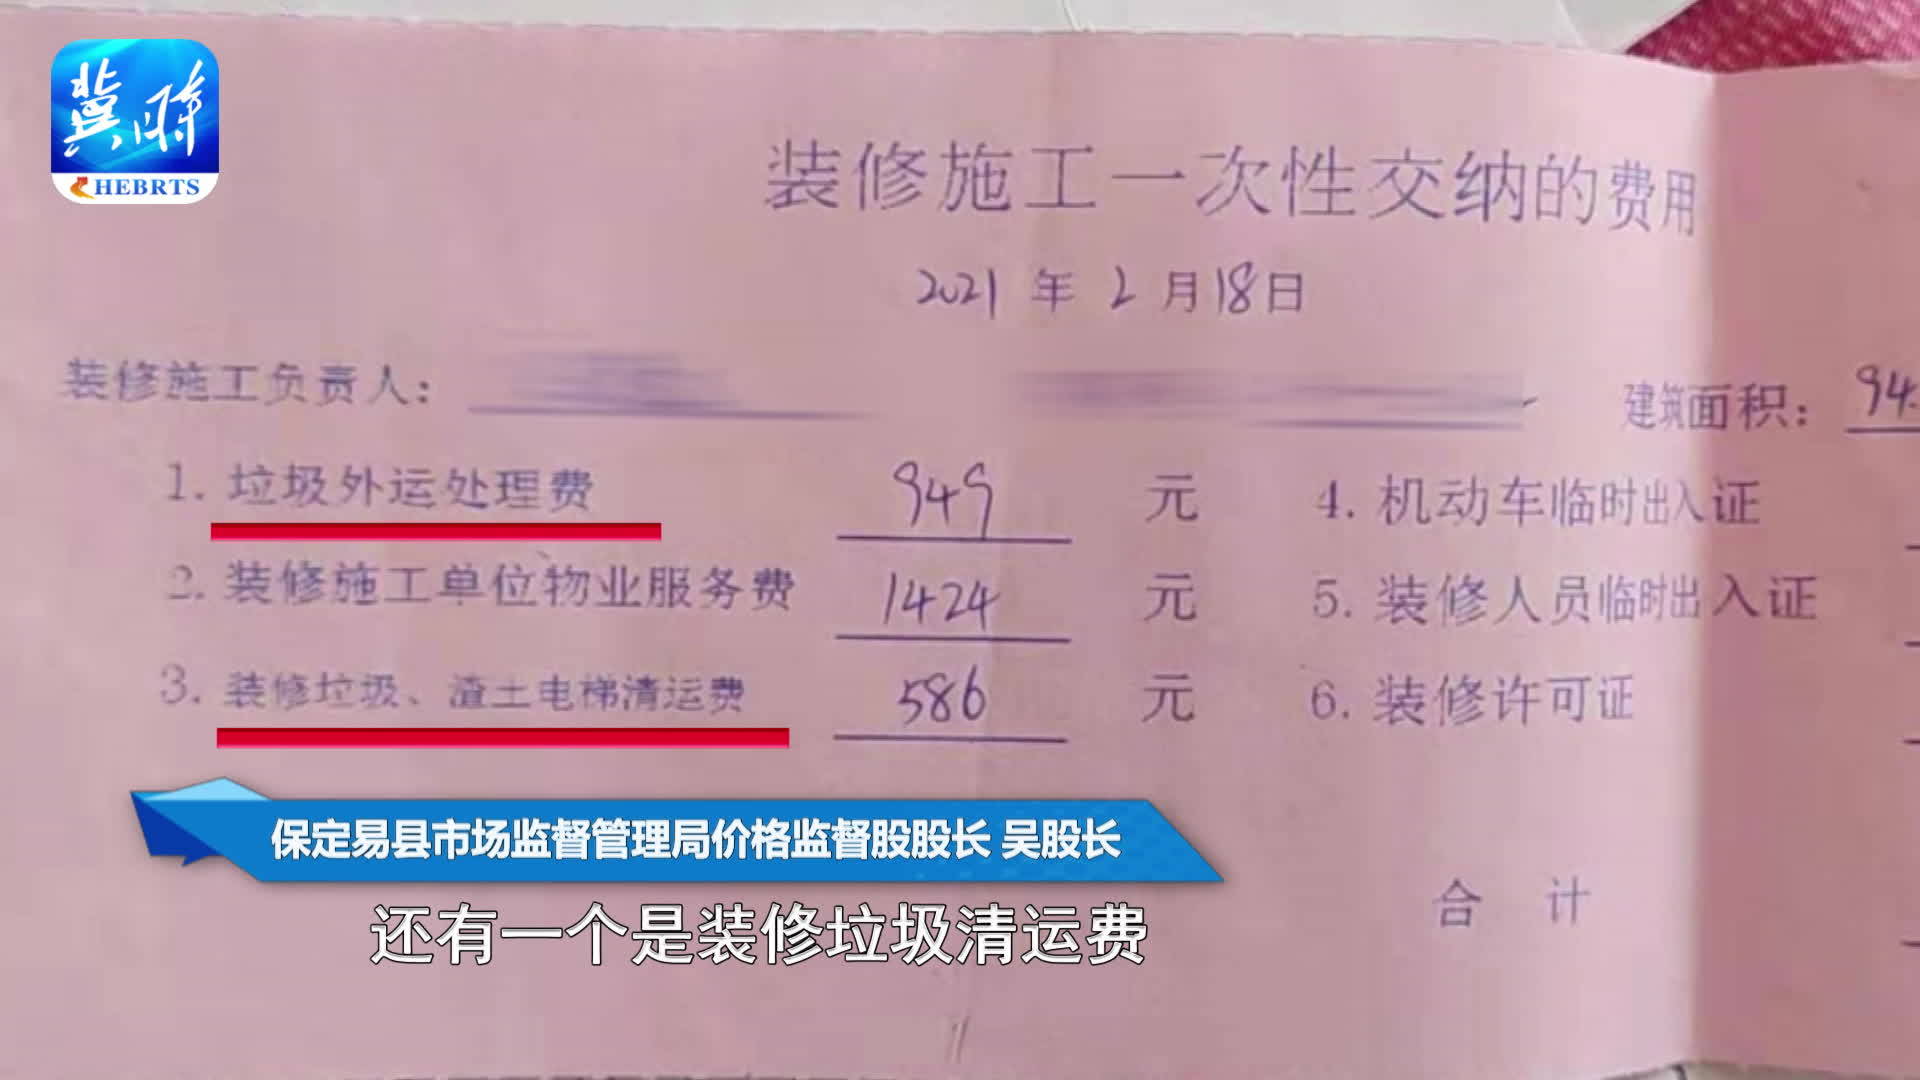 冀时
HEBRTS
装修施工一次性交纳的费用
2021 年 2 月 18 日
装修施工负责人:
建筑面积: 94.
1. 垃圾外运处理费 949 元 4. 机动车临时出入证
2. 装修施工单位物业服务费 1424 元 5. 装修人员临时出入证
3. 装修垃圾、渣土电梯清运费 586 元 6. 装修许可证
合 计
保定易县市场监督管理局价格监督股股长 吴股长
还有一个是装修垃圾清运费